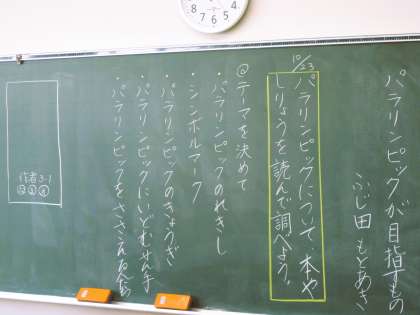 パラリンピックが目指すもの
ふじ田 もとあき
10/23
パラリンピックについて、本や
しりょうを読んで調べよう。
◎テーマを決めて
・パラリンピックのれきし
・シンボルマーク
・パラリンピックのきょうぎ
・パラリンピックにいどむせん手
・パラリンピックをささえる
作者 3-1